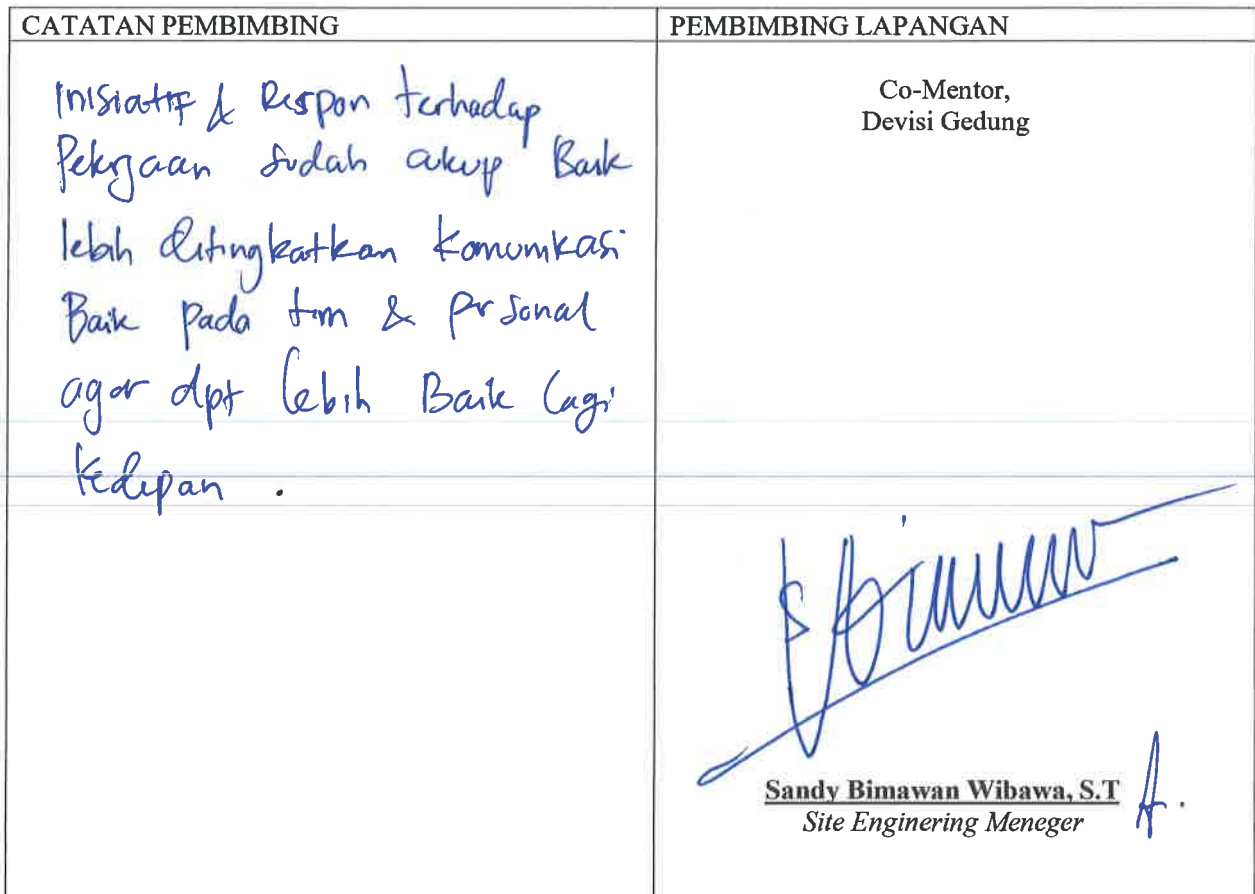 CATATAN PEMBIMBING
Inisiatif & Respon terhadap
Pekerjaan sudah cukup Baik
lebih ditingkatkan komunikasi
Baik pada tim & personal
agar dpt lebih Baik lagi
kedepan .
PEMBIMBING LAPANGAN
Co-Mentor,
Devisi Gedung
Sandy Bimawan Wibawa, S.T
Site Enginering Meneger